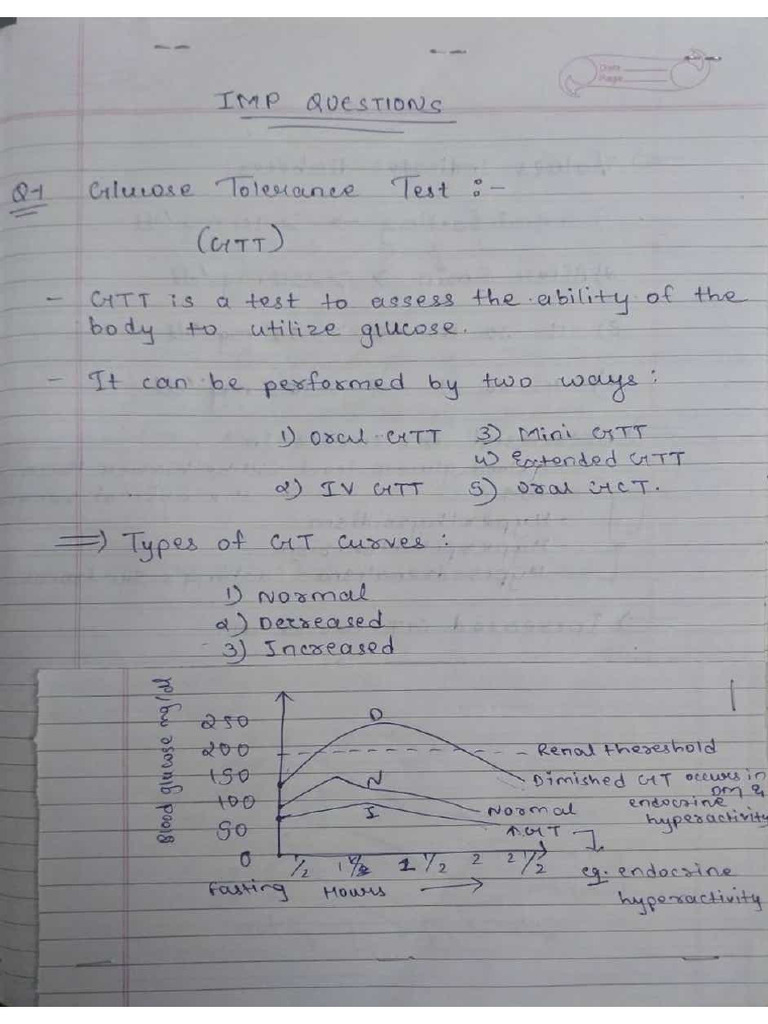 Date
Page
IMP QUESTIONS
Q-1 Glucose Tolerance Test :-
(GTT)
- GTT is a test to assess the ability of the
body to utilize glucose.
- It can be performed by two ways:
1) Oral GTT 3) Mini GTT
4) Extended GTT
2) IV GTT 5) Oral GCT.
=> Types of GT curves:
1) Normal
2) Decreased
3) Increased
Blood glucose mg/dl
250
200
150
100
50
0
D
N
I
Renal thereshold
Dimished GT occurs in
DM &
endocrine
hyperactivity
Normal
↑GT
eg. endocrine
hyperactivity
1/2 1 1/2 2 2 1/2
Fasting Hours →